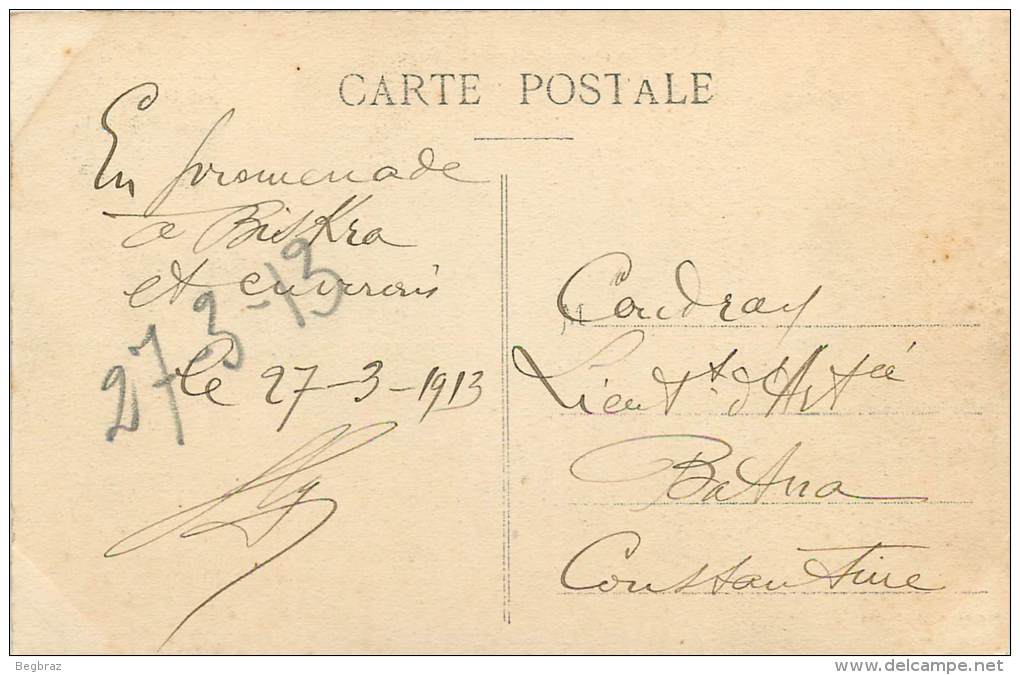 CARTE POSTALE
En promenade
à Biskra
et environs
27-3-13
le 27-3-1913
M Coudray
Lieut t d'Art ie
Batna
Constantine
Begbraz
www.delcampe.net